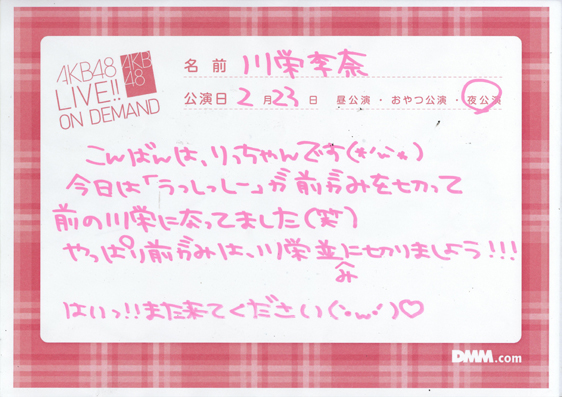 AKB48
LIVE!!
ON DEMAND
AKB
48
名前 川栄李奈
公演日 2月23日 昼公演・おやつ公演・夜公演
こんばんは、りっちゃんです(*'ω'*)
今日は「うっしっしー」が前がみを切って
前の川栄になってました(笑)
やっぱり前がみは、川栄並に切りましょう!!!
み
はいっ!!また来てください(・ω・)♡
DMM.com